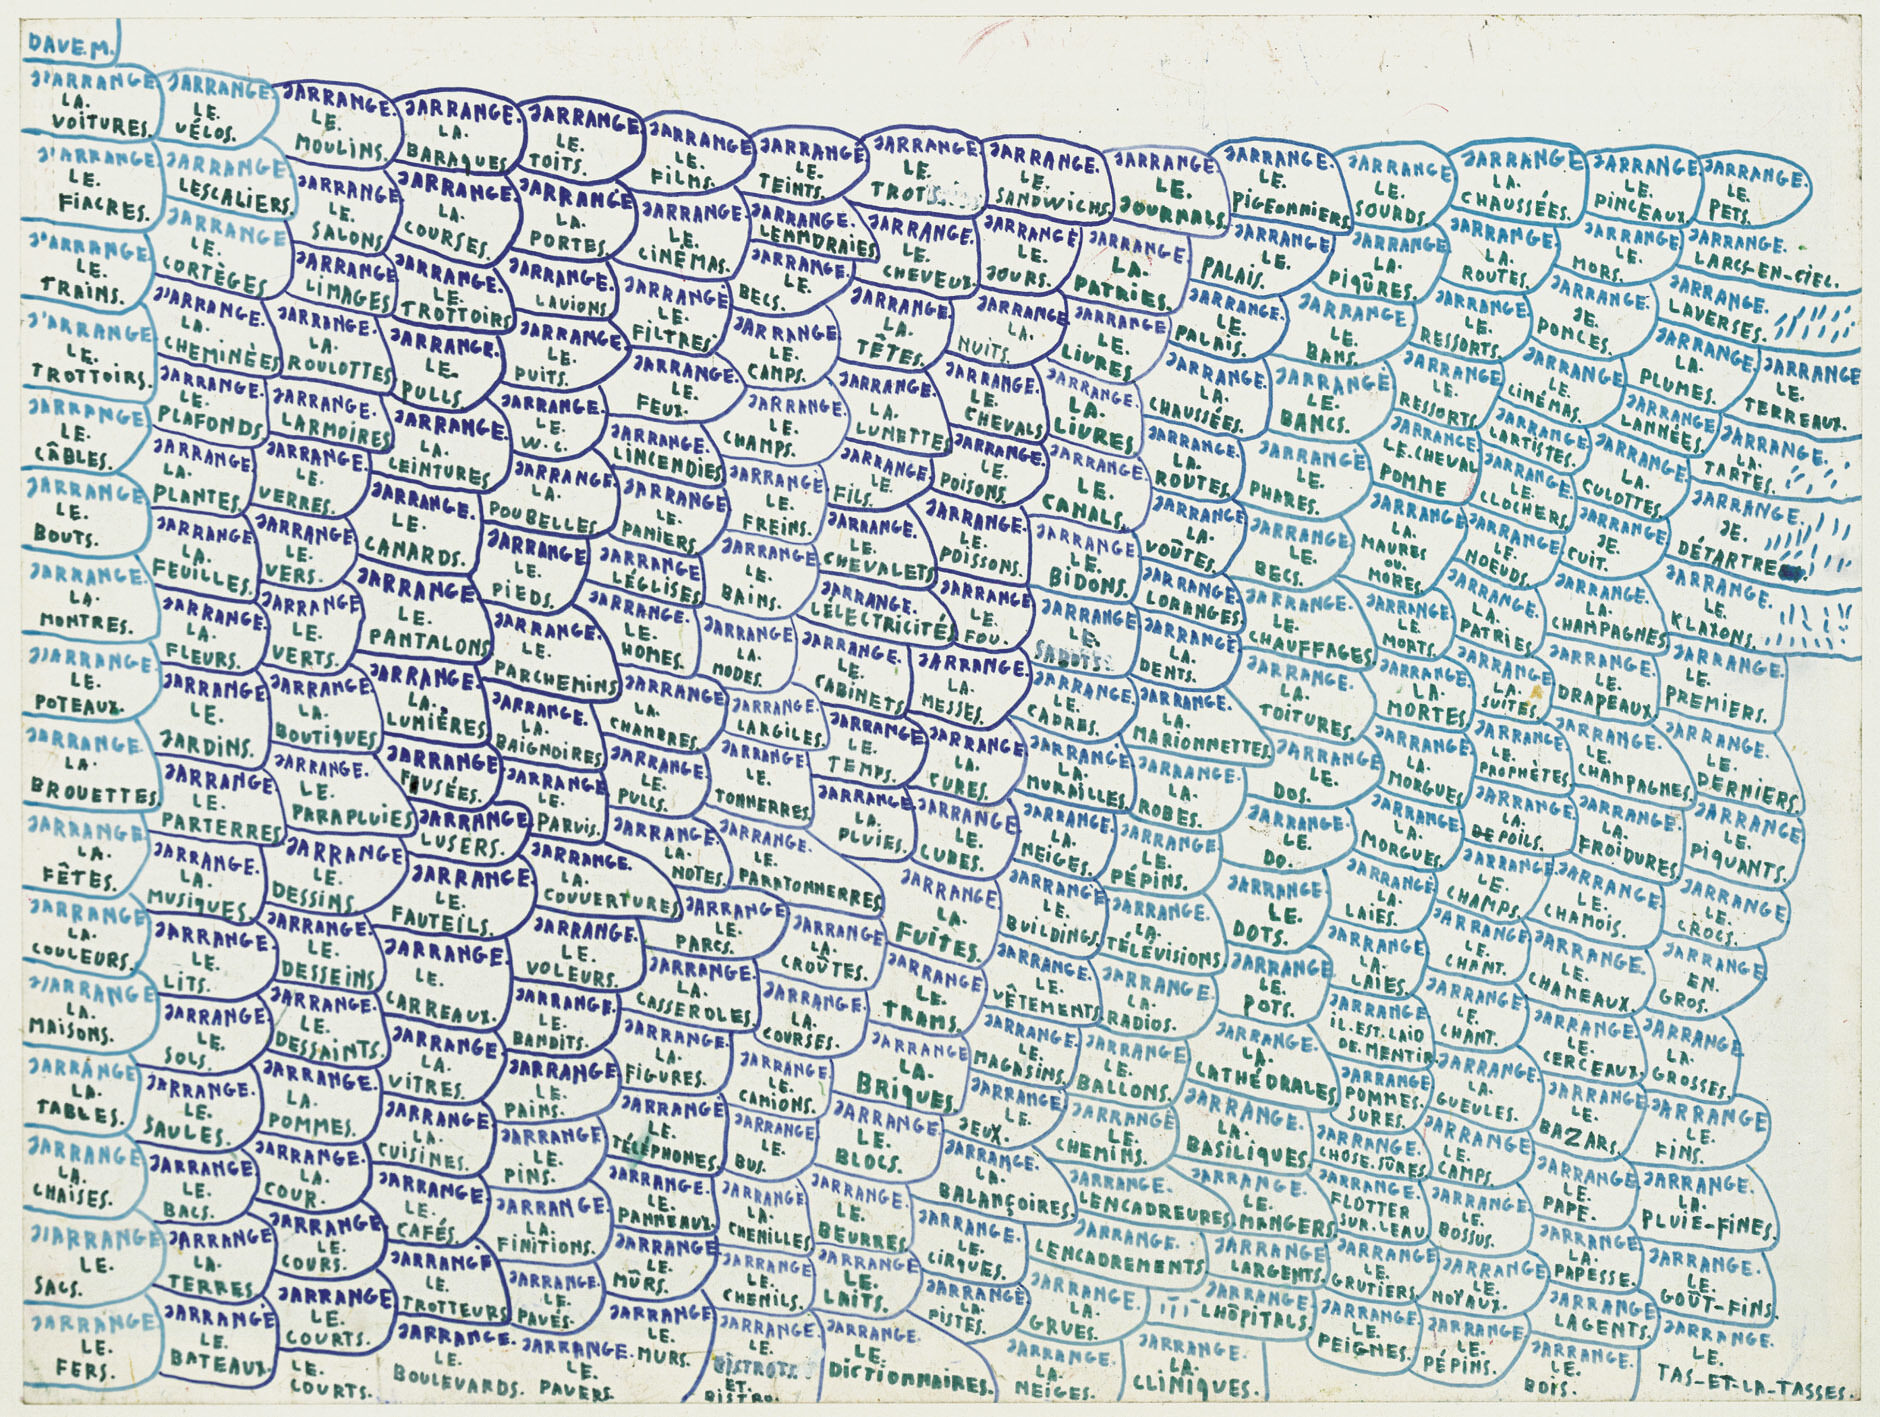 DAVE.M.
J'ARRANGE.
LA.
VOITURES.
J'ARRANGE.
LE.
FIACRES.
J'ARRANGE.
LE.
TRAINS.
J'ARRANGE.
LE.
TROTTOIRS.
JARRANGE.
LE.
CÂBLES.
JARRANGE.
LE.
BOUTS.
JARRANGE.
LA.
MONTRES.
J'ARRANGE.
LE.
POTEAUX.
JARRANGE.
LA.
BROUETTES.
JARRANGE.
LA.
FÊTES.
JARRANGE.
LA.
COULEURS.
J'ARRANGE.
LA.
MAISONS.
JARRANGE.
LA.
TABLES.
JARRANGE.
LA.
CHAISES.
J'ARRANGE.
LE.
SACS.
JARRANGE.
LE.
FERS.
JARRANGE.
LE.
VÉLOS.
JARRANGE.
LESCALIERS.
JARRANGE.
LE.
CORTÈGES
J'ARRANGE.
LA.
CHEMINÉES
JARRANGE.
LE.
PLAFONDS
JARRANGE.
LA.
PLANTES.
JARRANGE.
LA.
FEUILLES.
JARRANGE.
LA.
FLEURS.
JARRANGE.
LE.
JARDINS.
JARRANGE.
LE.
PARTERRES
JARRANGE.
LA.
MUSIQUES.
JARRANGE.
LE.
LITS.
JARRANGE.
LE.
SOLS.
JARRANGE.
LE.
SAULES.
JARRANGE.
LE.
BACS.
JARRANGE.
LA.
TERRES.
JARRANGE
LE.
BATEAUX.
JARRANGE.
LE.
MOULINS.
JARRANGE.
LE.
SALONS
JARRANGE
LIMAGES
JARRANGE.
LA.
ROULOTTES
JARRANGE.
LARMOIRES
JARRANGE.
LE.
VERRES.
JARRANGE.
LE.
VERS.
JARRANGE
LE.
VERTS.
JARRANGE.
LA.
BOUTIQUES
JARRANGE.
LE.
PARAPLUIES
JARRANGE
LE.
DESSINS.
JARRANGE.
LE.
DESSEINS
JARRANGE.
LE.
DESSAINTS.
JARRANGE.
LA.
POMMES.
JARRANGE.
LA.
COUR.
JARRANGE
LE.
COURS.
JARRANGE
LE.
COURTS.
LE.
COURTS.
JARRANGE.
LA.
BARAQUES
JARRANGE.
LA.
COURSES.
JARRANGE.
LE.
TROTTOIRS
JARRANGE.
LE.
PULLS.
JARRANGE.
LA.
CEINTURES
JARRANGE.
LE.
CANARDS.
JARRANGE.
LE.
PANTALONS
JARRANGE.
LA.
LUMIÈRES
JARRANGE.
FUSÉES.
JARRANGE
LUSERS.
JARRANGE.
LE.
FAUTEILS.
JARRANGE.
LE.
CARREAUX.
JARRANGE.
LA.
VITRES.
JARRANGE.
LA.
CUISINES.
JARRANGE
LE.
CAFÉS.
JARRANGE.
LE.
TROTTEURS
JARRANGE.
LE.
BOULEVARDS.
JARRANGE.
LE.
TOITS.
JARRANGE
LA.
PORTES.
JARRANGE.
LAVIONS
JARRANGE.
LE.
PUITS.
JARRANGE.
LE.
W.C.
JARRANGE.
LA.
POUBELLES
JARRANGE
LE.
PIEDS.
JARRANGE.
LE.
PARCHEMINS
JARRANGE.
LA.
BAIGNOIRES
JARRANGE
LE.
PARVIS.
JARRANGE.
LA.
COUVERTURES
JARRANGE.
LE.
VOLEURS.
JARRANGE
LE.
BANDITS.
JARRANGE
LE.
PAINS.
JARRANGE
LE.
PINS.
JARRANGE.
LA.
FINITIONS.
JARRANGE.
LE.
PAVÉS.
JARRANGE.
LE.
PAVERS.
JARRANGE
LE.
FILMS.
JARRANGE.
LE.
CINÉMAS.
JARRANGE
LE.
FILTRES
JARRANGE.
LE.
FEUX.
JARRANGE.
LINCENDIES
JARRANGE
LE.
PANIERS
JARRANGE.
LÉGLISES
JARRANGE.
LE.
HOMES.
JARRANGE
LA.
CHAMBRES.
JARRANGE
LE.
PULLS.
JARRANGE.
LA.
NOTES.
JARRANGE.
LE.
PARCS.
JARRANGE.
LA.
CASSEROLES.
JARRANGE
LA.
FIGURES.
JARRANGE
LE.
TÉLÉPHONES.
JARRANGE.
LE.
PANNEAUX.
JARRANGE
LE.
MÛRS.
JARRANGE
LE.
MURS.
JARRANGE
LE.
TEINTS.
JARRANGE.
LEMMDRAIES
JARRANGE.
LE.
BECS.
JARRANGE.
LE.
CAMPS.
JARRANGE.
LE.
CHAMPS.
JARRANGE
LE.
FREINS.
JARRANGE.
LE.
BAINS.
JARRANGE
LA.
MODES.
JARRANGE.
LARGILES
JARRANGE.
LE.
TONNERRES.
JARRANGE.
LE.
PARATONNERRES
JARRANGE
LA.
CROÛTES.
JARRANGE.
LA.
COURSES.
JARRANGE
LE.
CAMIONS.
JARRANGE
LE.
BUS.
JARRANGE
LA.
CHENILLES
JARRANGE
LE.
CHENILS.
JARRANGE.
LE.
BISTROTS.
ET.
BISTRO.
JARRANGE.
LE.
JARRANGE.
LE.
CHEVEUX.
JARRANGE.
LA.
TÊTES.
JARRANGE.
LA.
LUNETTES
JARRANGE.
LE.
FILS.
JARRANGE.
LE.
CHEVALETS
JARRANGE.
LÉLECTRICITÉ
JARRANGE.
LE.
CABINETS
JARRANGE
LE.
TEMPS.
JARRANGE.
LA.
PLUIES.
JARRANGE
LA.
FUITES.
JARRANGE
LE.
TRAMS.
JARRANGE
LA.
BRIQUES.
JARRANGE.
LE.
BLOCS.
JARRANGE
LE.
BEURRES
JARRANGE.
LE.
LAITS.
JARRANGE.
LE.
DICTIONNAIRES.
JARRANGE.
LE.
SANDWICHS.
JARRANGE
LE.
JOURS.
JARRANGE
LA.
NUITS.
JARRANGE.
LE.
CHEVALS
JARRANGE.
LE.
POISONS.
JARRANGE.
LE.
POISSONS.
JARRANGE
LE.
FOU.
JARRANGE.
LA.
MESSES.
JARRANGE
LA.
CURES.
JARRANGE
LE.
CUBES.
JARRANGE
LE.
BUILDINGS.
JARRANGE.
LE.
VÊTEMENTS
JARRANGE.
LE.
MAGASINS.
JARRANGE
LE.
JEUX.
JARRANGE
LA.
BALANÇOIRES
JARRANGE.
LE.
CIRQUES.
JARRANGE
LA.
PISTES.
JARRANGE.
LE.
JOURNALS.
JARRANGE.
LA.
PATRIES.
JARRANGE
LE.
LIVRES
JARRANGE.
LA.
LIVRES
JARRANGE.
LE.
CANALS.
JARRANGE
LE.
BIDONS.
JARRANGE
LE.
SABOTS.
JARRANGE.
LE.
CADRES.
JARRANGE.
LA.
MURAILLES.
JARRANGE
LA.
NEIGES.
JARRANGE
LE.
PÉPINS.
JARRANGE.
LA.
TÉLÉVISIONS
JARRANGE
LA.
RADIOS.
JARRANGE
LE.
BALLONS.
JARRANGE
LE.
CHEMINS.
JARRANGE.
LENCADREURES
JARRANGE.
LENCADREMENTS
JARRANGE
LA.
GRUES.
JARRANGE
LA.
NEIGES.
JARRANGE.
LE.
PIGEONNIERS
JARRANGE
LE.
PALAIS.
JARRANGE.
LE.
PALAIS.
JARRANGE.
LA.
CHAUSSÉES.
JARRANGE
LA.
ROUTES.
JARRANGE
LA.
VOÛTES.
JARRANGE
LORANGES
JARRANGE.
LA.
DENTS.
JARRANGE.
LA.
MARIONNETTES.
JARRANGE.
LA.
ROBES.
JARRANGE
LE.
SOURDS.
JARRANGE
LA.
PIQÛRES.
JARRANGE
LE.
BANS.
JARRANGE
LE.
BANCS.
JARRANGE
LE.
PHARES.
JARRANGE
LE.
BECS.
JARRANGE.
LE.
CHAUFFAGES
JARRANGE.
LA.
TOITURES.
JARRANGE
LE.
DOS.
JARRANGE.
LE.
DO.
JARRANGE
LE.
DOTS.
JARRANGE
LE.
POTS.
JARRANGE.
LA.
CATHÉDRALES
JARRANGE.
LA.
BASILIQUES
JARRANGE.
LE.
MANGERS
JARRANGE
LARGENTS
JARRANGE
LHÔPITALS.
JARRANGE.
LA.
CLINIQUES.
JARRANGE
LA.
CHAUSSÉES.
JARRANGE
LA.
ROUTES.
JARRANGE
LE.
RESSORTS.
JARRANGE
LE.
RESSORTS
JARRANGE
LE.CHEVAL
POMME
JARRANGE
LA.
MAURES
OU.
MORES.
JARRANGE.
LE.
MORTS.
JARRANGE
LA.
MORTES
JARRANGE
LA.
MORGUES
JARRANGE
LA.
MORGUES.
JARRANGE
LA.
LAIES.
JARRANGE
LA.
LAIES.
JARRANGE
IL.EST.LAID
DE.MENTIR.
JARRANGE
POMMES.
SURES.
JARRANGE.
CHOSE.SÛRES
JARRANGE
FLOTTER
SUR.LEAU
JARRANGE
LE.
GRUTIERS.
JARRANGE
LE.
PEIGNES.
JARRANGE
LE.
PINCEAUX
JARRANGE
LE.
MORS.
JARRANGE.
JE.
PONCES.
JARRANGE
LE.
CINÉMAS.
JARRANGE
LARTISTES.
JARRANGE
LE.
CLOCHERS
JARRANGE
LE.
NOEUDS.
JARRANGE
LA.
PATRIES
JARRANGE
LA.
SUITES.
JARRANGE
LE.
PROPHÈTES
JARRANGE
LA.
DEPOILS.
JARRANGE
LE.
CHAMPS.
JARRANGE
LE.
CHANT.
JARRANGE
LE.
CHANT.
JARRANGE
LA.
GUEULES.
JARRANGE
LE.
CAMPS.
JARRANGE
LE.
BOSSUS.
JARRANGE
LE.
NOYAUX.
JARRANGE
LE.
PÉPINS.
JARRANGE.
LE.
PETS.
JARRANGE.
LARCS-EN-CIEL.
JARRANGE.
LAVERSES.
JARRANGE
LA.
PLUMES.
JARRANGE
LANNÉES
JARRANGE
LA.
CULOTTES.
JARRANGE
JE.
CUIT.
JARRANGE.
LA.
CHAMPAGNES
JARRANGE
LE.
DRAPEAUX
JARRANGE.
LE.
CHAMPAGNES.
JARRANGE.
LA.
FROIDURES
JARRANGE.
LE.
CHAMOIS.
JARRANGE.
LE.
CHAMEAUX.
JARRANGE
LE.
CERCEAUX.
JARRANGE
LE.
BAZARS.
JARRANGE
LE.
PAPE.
JARRANGE
LA.
PAPESSE.
JARRANGE
LAGENTS.
JARRANGE
LE.
BOIS.
JARRANGE
LE.
TERREAUX.
JARRANGE.
LA.
TARTES.
JARRANGE.
JE.
DÉTARTRE
JARRANGE.
LE.
KLAXONS.
JARRANGE
LE.
PREMIERS.
JARRANGE.
LE.
DERNIERS.
JARRANGE
LE.
PIQUANTS.
JARRANGE
LE.
CROCS.
JARRANGE
EN.
GROS.
JARRANGE
LA.
GROSSES.
JARRANGE
LE.
FINS.
JARRANGE.
LA.
PLUIE-FINES
JARRANGE.
LE.
GOÛT-FINS.
JARRANGE.
LE.
TAS-ET-LA-TASSES.